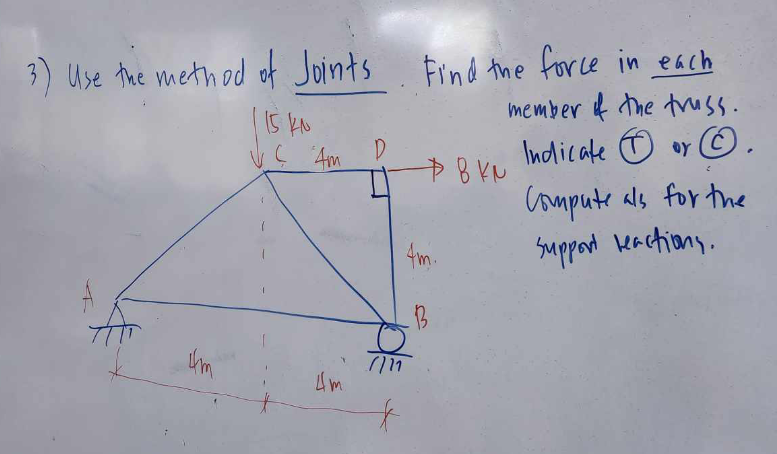 3) Use the method of Joints. Find the force in each
member of the truss.
Indicate T or C.
Compute als for the
support reactions.
15 kN
C 4m D
8 KN
4m.
A
B
4m
4m